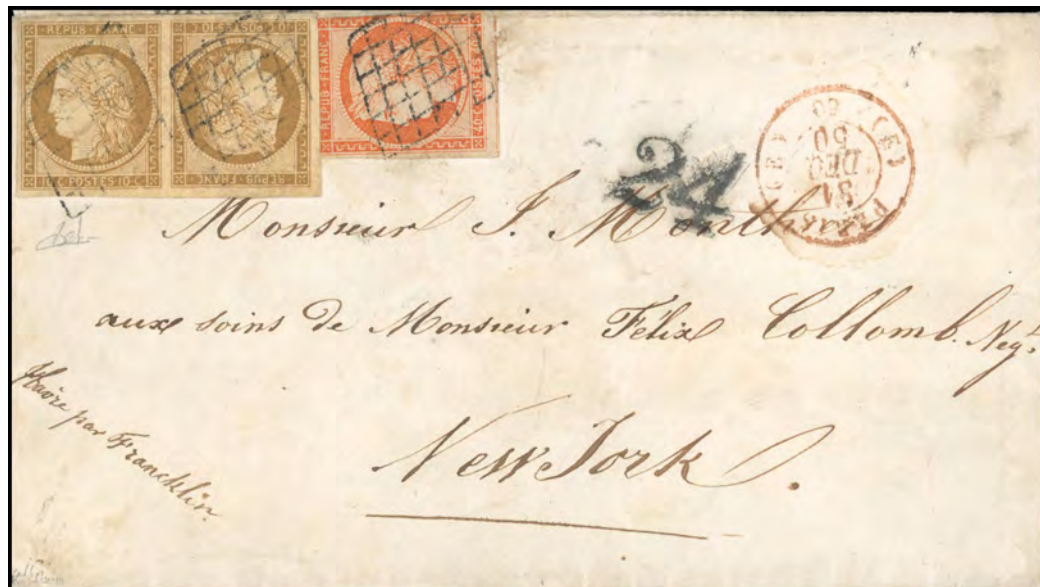 REPUB·FRANC
10·C·POSTES·10·C
REPUB·FRANC
10·C·POSTES·10·C
REPUB·FRANC
40·C·POSTES·40·C
24
31
DEC
50
Monsieur J. Monthard
aux soins de Monsieur Félix Collomb. Negt.
New York.
Havre par Francklin